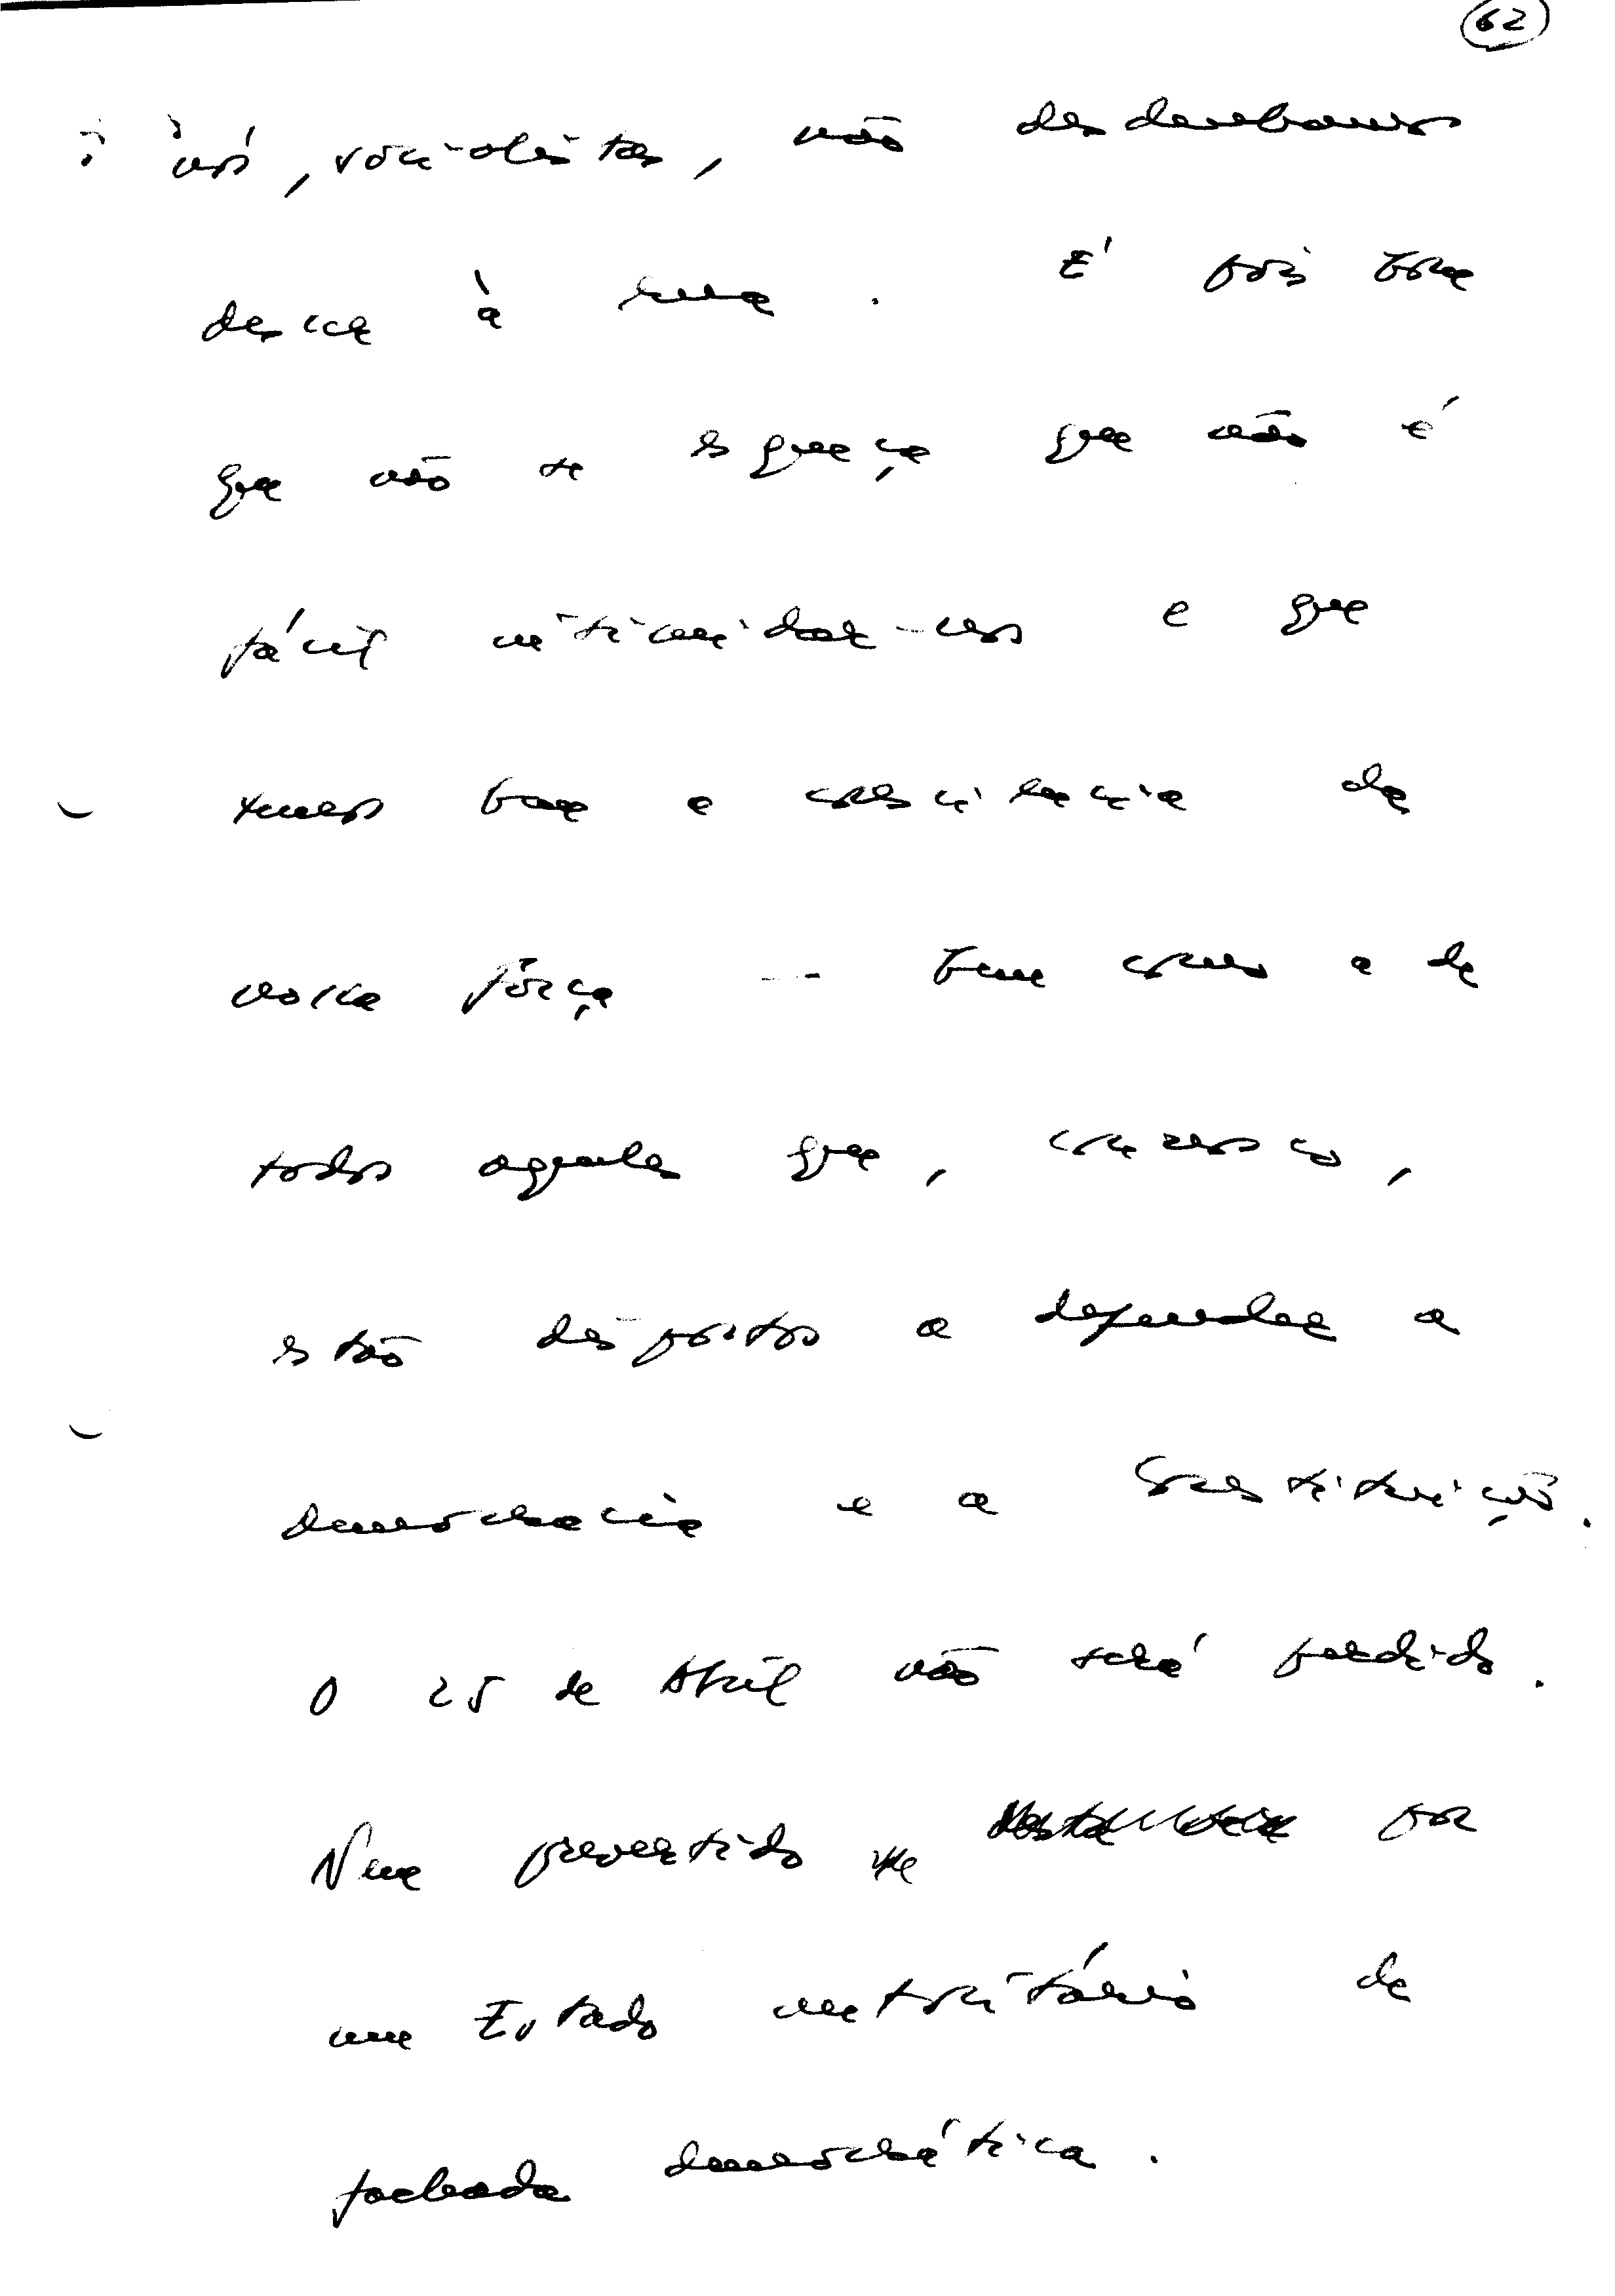 62
nós, socialistas, não desdenhamos
dessa à rua. É pois bom
que não se esqueça que não é
fácil intimidar-nos e que
temos boa e consciência da
nossa força -- bem como a de
todos aqueles que, connosco,
estão dispostos a defender a
democracia e a Constituição.
O 25 de Abril não será perdido.
Nem pervertido por
um Estado autoritário de
fachada democrática.